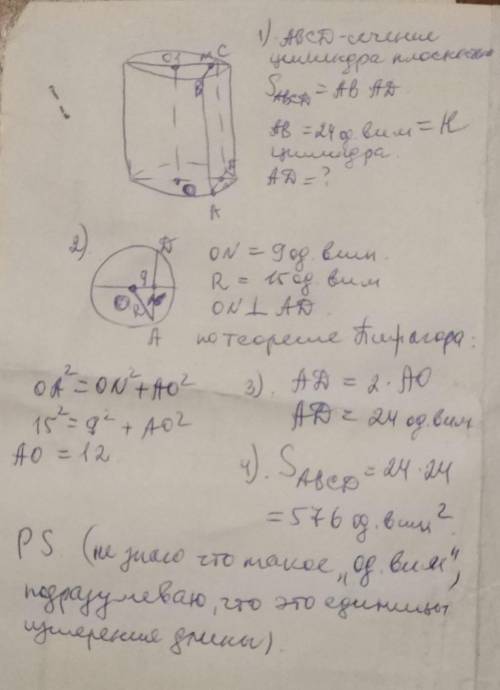 1) ABCD - сечение
цилиндра плоскостью
S ABCD = AB AD
AB = 24 од. вим = H
цилиндра.
AD = ?
O1 M C
B
D
O
A
2).
D
9
O N
R
A
ON = 9 од. вим.
R = 15 од. вим
ON ⊥ AD.
по теореме Пифагора:
OA² = ON² + AO²
15² = 9² + AO²
AO = 12
3). AD = 2 · AO
AD = 24 од. вим
4). S ABCD = 24 · 24
= 576 од. вим².
PS. (не знаю что такое "од. вим",
подразумеваю, что это единицы
измерения длины).